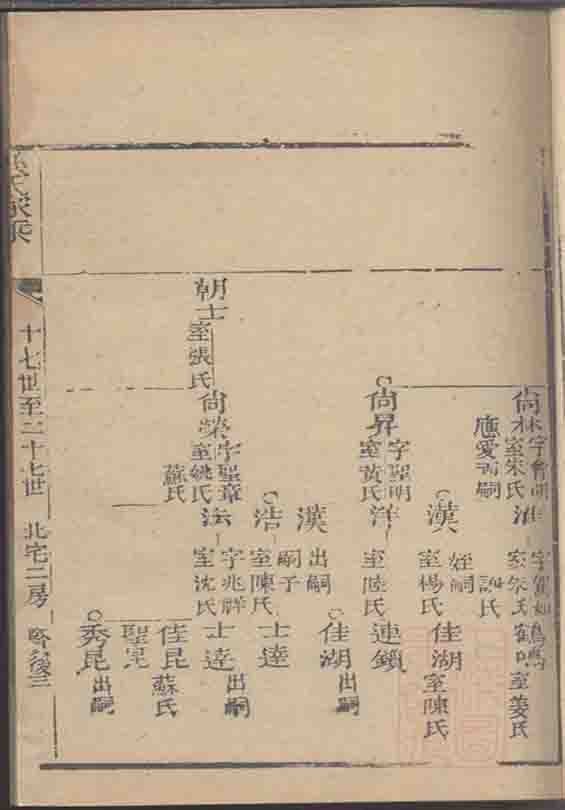 尚林字會明室朱氏
應愛西嗣
淮字賀如
室朱氏
誠氏
鶴鳴室姜氏
漢
姪嗣
室楊氏
佳湖室陳氏
尚昇字聖明
室黃氏
洋室陸氏
連鎖
漢出嗣
佳湖出嗣
浩嗣子
室陳氏
士逵
朝士室張氏
尚榮字聖章
室姚氏
蘇氏
法字兆祥
室沈氏
士逵出嗣
佳昆蘇氏
聖昆
秀昆出嗣
氏家乘
十七世至二十七世
北宅二房